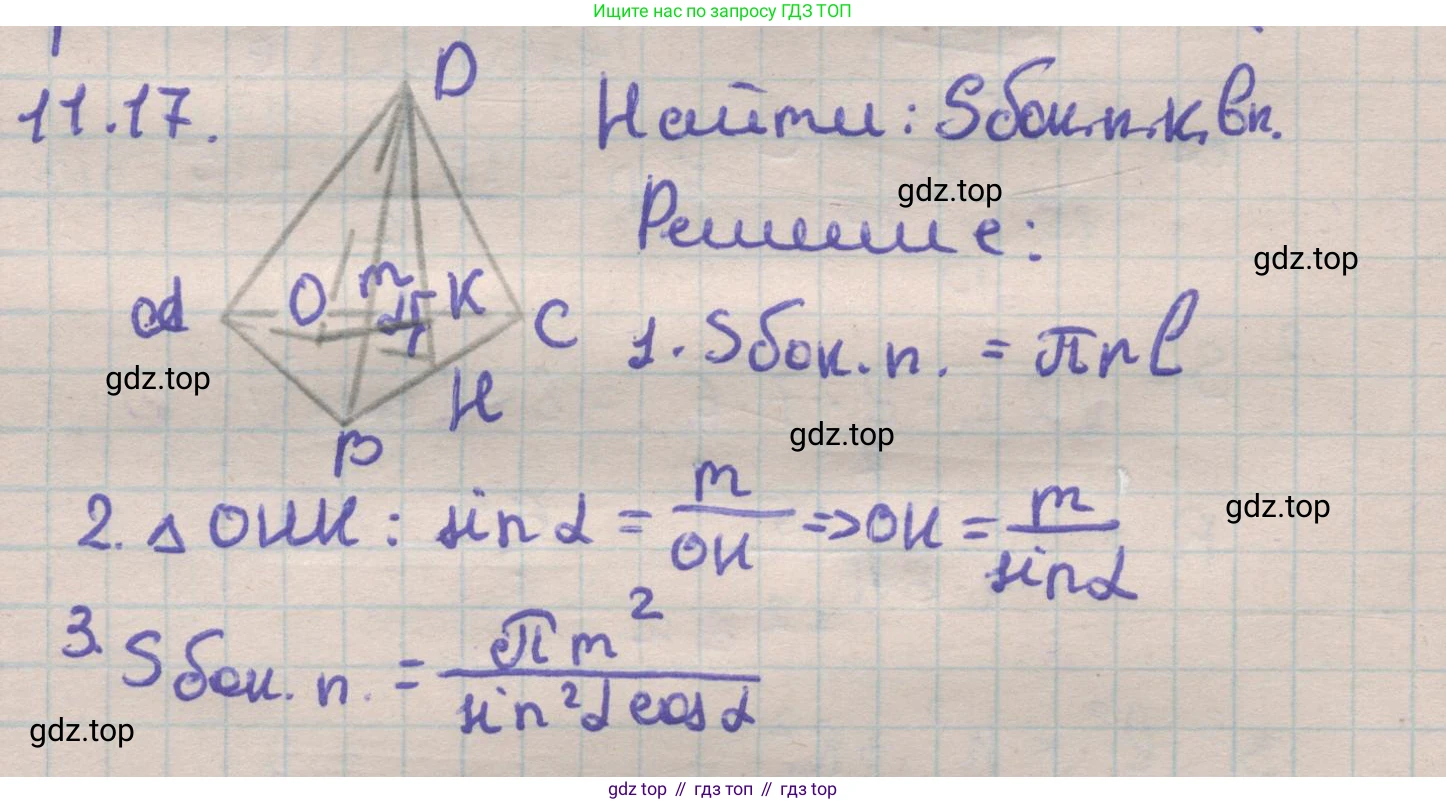 Ищите нас по запросу ГДЗ ТОП
11.17.
D
Найти: Sбок.п.к. вп.
gdz.top
Решение:
gdz.top
α O m α K C
gdz.top
1. Sбок.п. = πrl
H
gdz.top
B
2. △ OHK: sin α = m/OK => OK = m/sin α
gdz.top
3. Sбок.п. = πm²/sin²α cos α
gdz.top
gdz top // гдз топ // гдз top